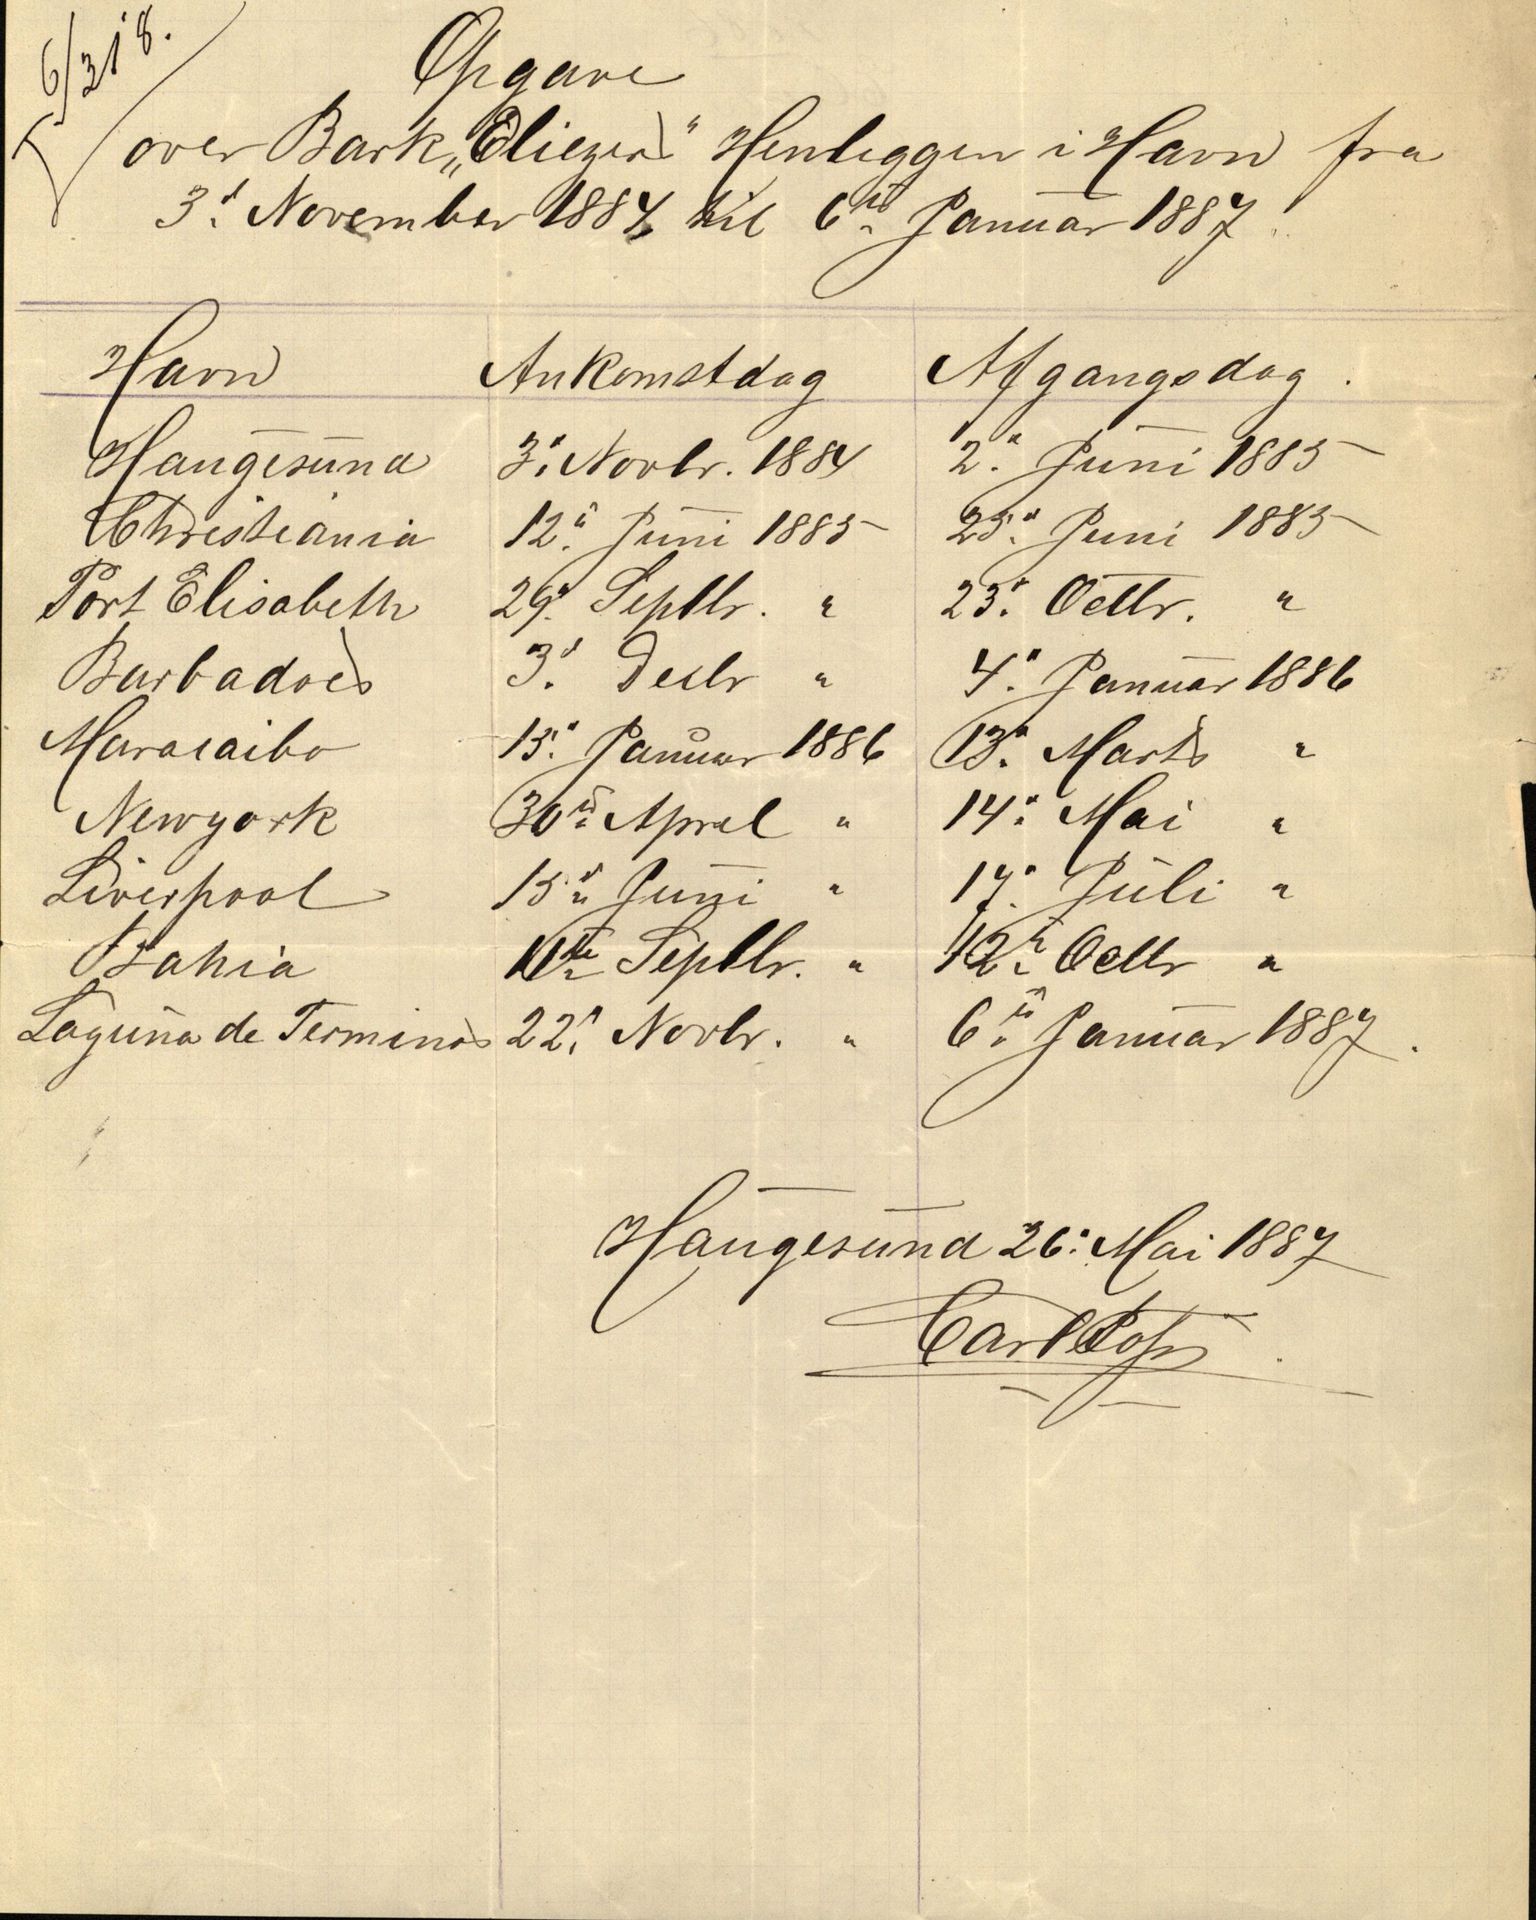 6/318.
Opgave
over Bark „Eliezer" Henliggen i Havn fra
3d. November 1884 til 6te Januar 1887
Havn Ankomstdag Afgangsdag.
Haugesund 3d. Novbr. 1884 2d. Juni 1885
Christiania 12te Juni 1885 25d. Juni 1885
Port Elisabeth 29d. Septbr. " 25d. Octbr. "
Barbadoes 3d. Decbr " 4d. Januar 1886
Maracaibo 15d. Januar 1886 13d. Marts "
Newyork 30te April " 14d. Mai "
Liverpool 15d Juni " 17d. Juli "
Bahia 11te Septbr. " 12te Octbr "
Laguna de Terminos 22d. Novbr. " 6te Januar 1887.
Haugesund 26d. Mai 1887
Carl